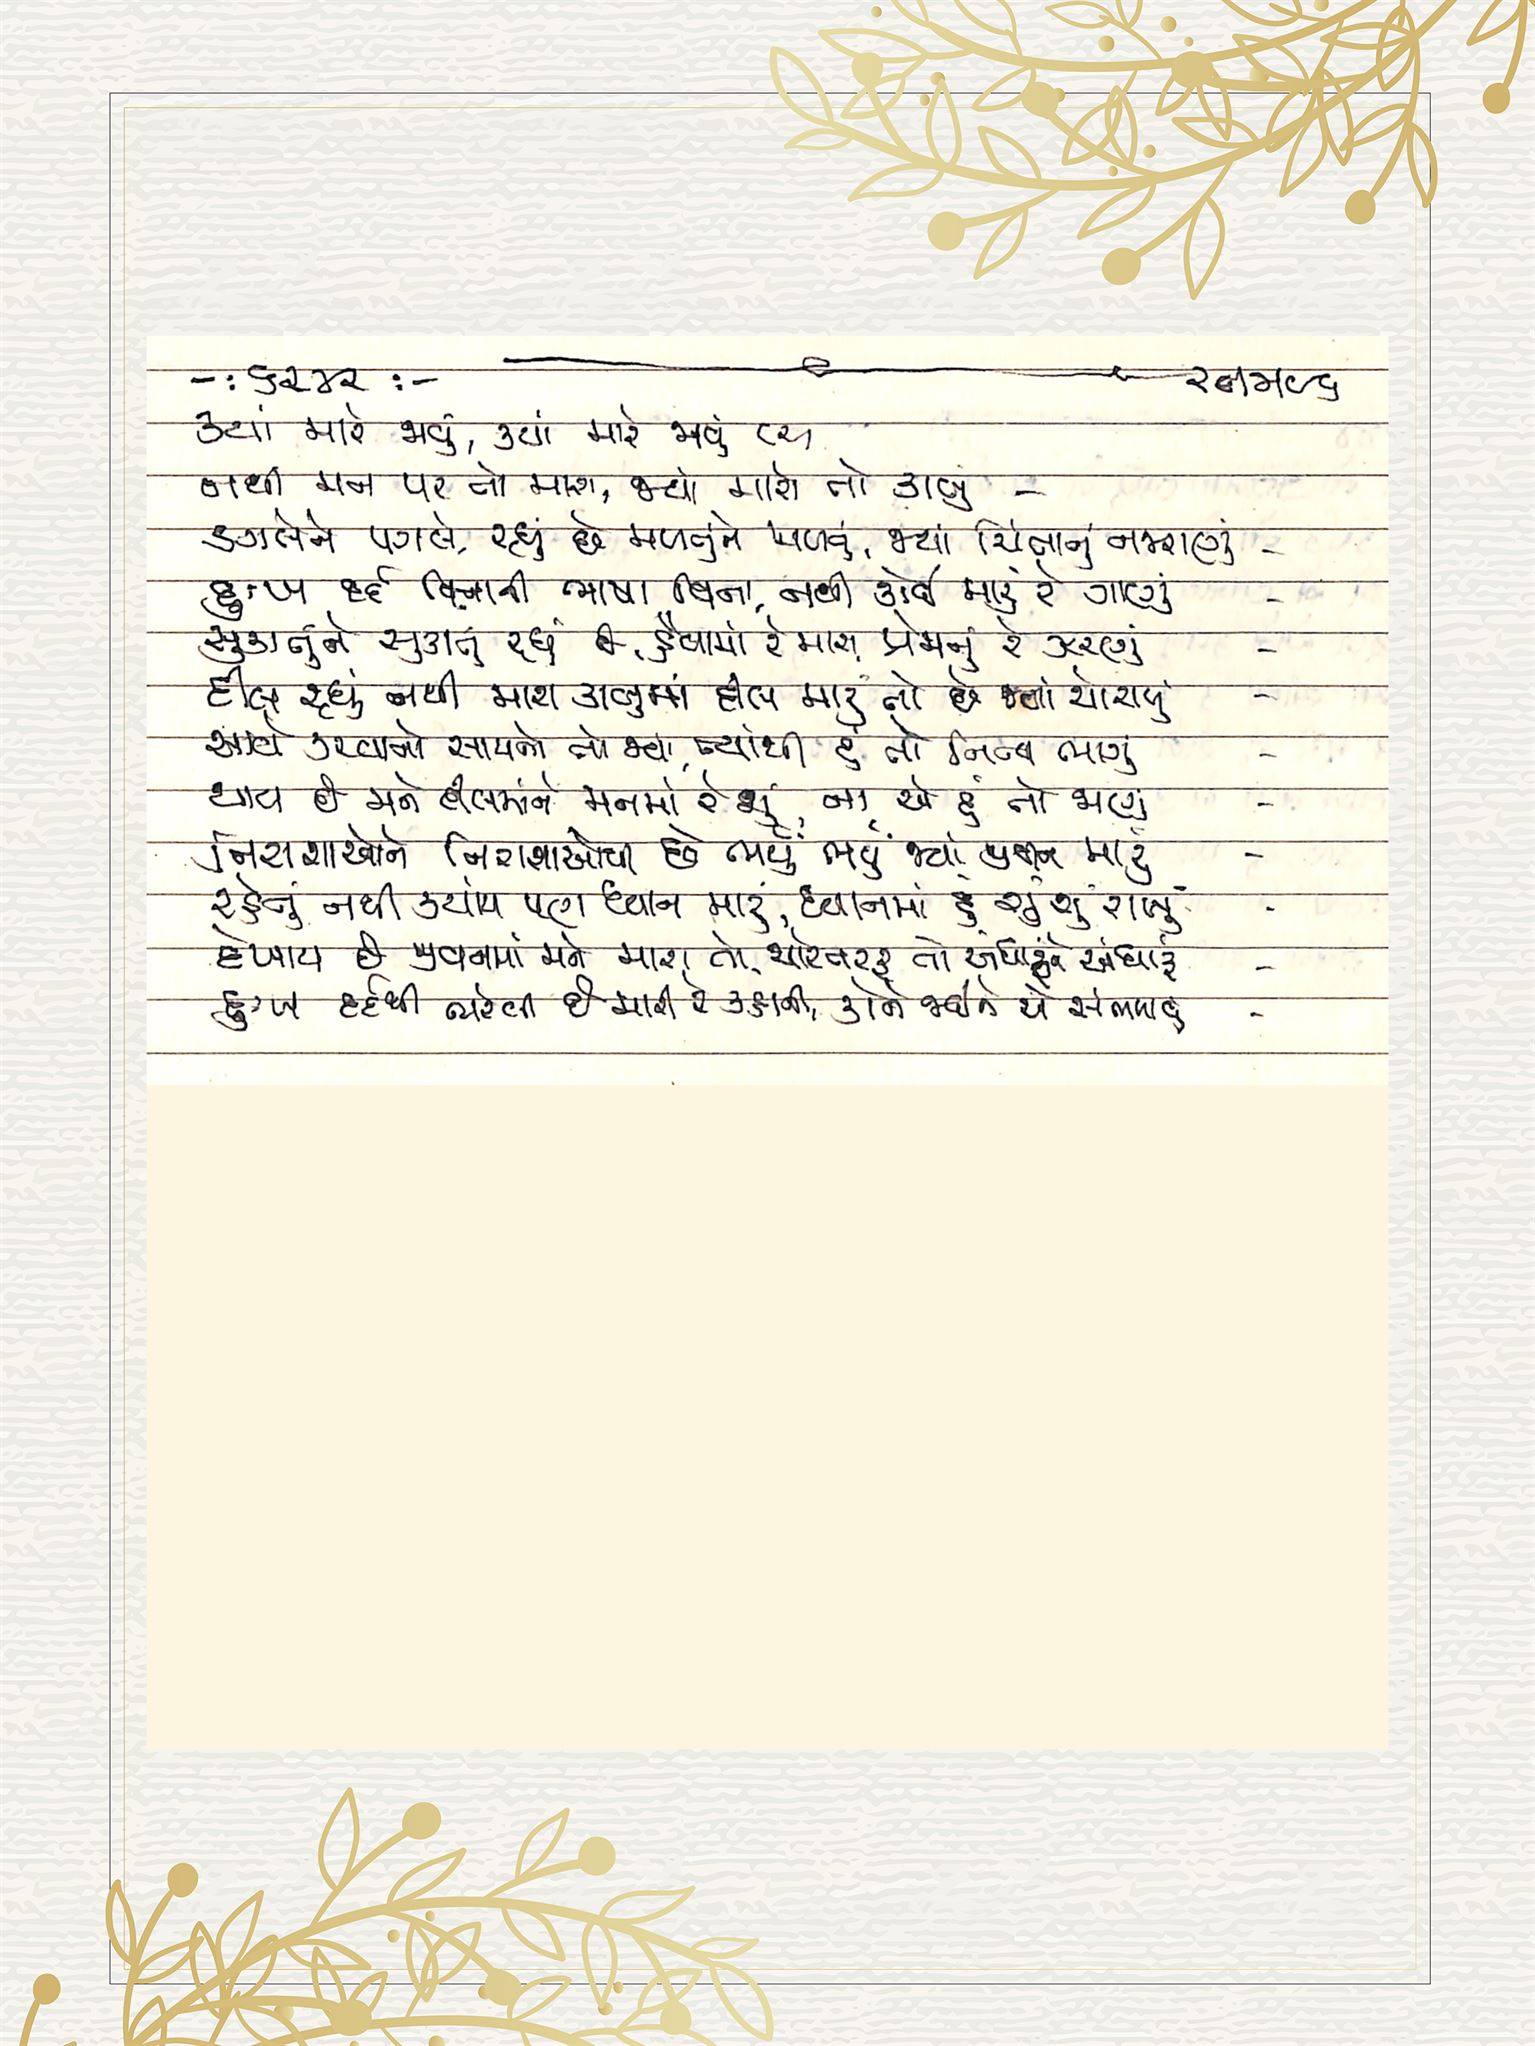 ક્યાં મારે જાવું, ક્યાં મારે જાવું
નથી મન પર તો મારા, જ્યાં મારો તો કાબુ -
ડગલેને પગલે, રહ્યું છે મળતુંને મળતું, જ્યાં ચિંતાનું નજરાણું -
દુઃખ દર્દ વિનાની ભાષા વિના, નથી કોઈ મારું રે ગાણું -
સુકાતુંને સુકાતું રહ્યું છે, હૈયામાં રે મારા, પ્રેમનું રે ઝરણું -
દીલ રહ્યું નથી મારા કાબુમાં દીલ મારું તો છે જ્યાં ચોરાયું -
આવે કરવાનો સામનો તો જ્યાં, ત્યાંથી હું તો નિત્ય ભાગું -
થાય છે મને દીલમાંને મનમાં રે શું, ના એ હું તો જાણું -
નિરાશાઓને નિરાશાઓથી છે ભર્યું ભર્યું જ્યાં જીવન મારું -
રહેતું નથી ક્યાંય પણ ધ્યાન મારું, ધ્યાનમાં હું શું શું રાખું -
દેખાય છે જીવનમાં મને મારા તો, ચારેતરફ તો અંધારુંને અંધારું -
દુઃખ દર્દથી ભરેલી છે મારી રે કહાની, કોને જઈને એ સંભળાવું -